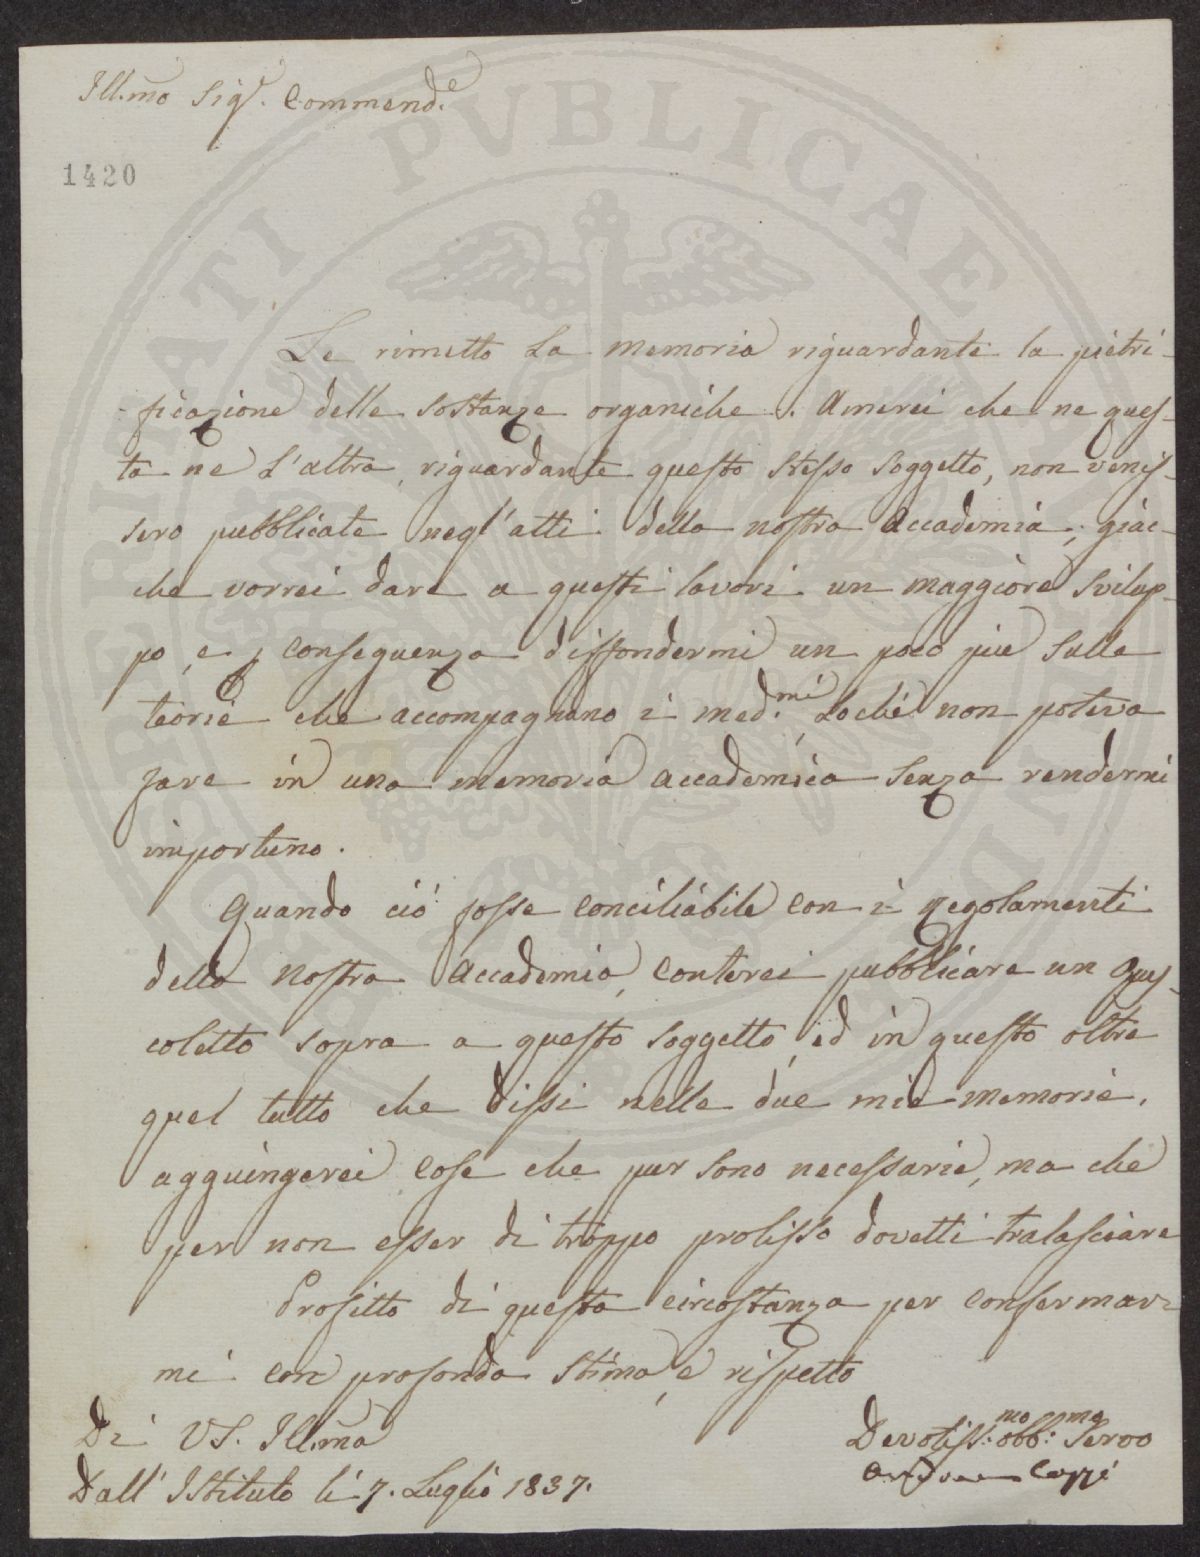 Ill.mo Sig.r Commend.e
1420
Le rimetto la memoria riguardante la pietri-
ficazione delle sostanze organiche. Amerei che ne ques-
ta ne l'altra, riguardante questo stesso soggetto, non venis-
sero pubblicate negl'atti della nostra accademia; giac-
che vorrei dare a questi lavori un maggiore svilup-
po, e p conseguenza diffondermi un poco piu sulle
teorie che accompagnano i med.mi Loche non poteva
fare in una memoria accademica senza rendermi
importuno.
Quando ciò fosse conciliabile con i regolamenti
della nostra Accademia, conterei pubblicare un Opus-
coletto sopra a questo soggetto, ed in questo oltre
quel tutto che dissi nelle due mie memorie,
agguingerei cose che pur sono necessarie, ma che
per non esser di troppo prolisso dovetti tralasciare
Profitto di questa circostanza per confermar-
mi con profonda stima, e rispetto
Di VS. Ill.ma
Dall'Istituto li 7. Luglio 1837.
Devotiss:mo obb:mo Servo
PERITATI PVBLICAE